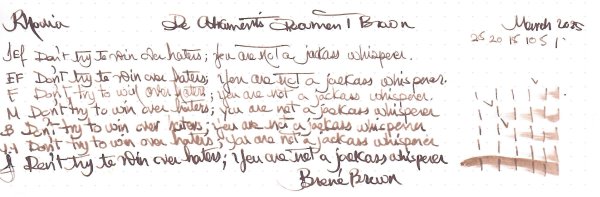 Rhodia De Atramentis Document Brown March 2025
25 20 15 10 5 1
Jef Don't try to win over haters; you are not a jackass whisperer.
EF Don't try to win over haters; you are not a jackass whisperer.
F Don't try to win over haters; you are not a jackass whisperer.
M Don't try to win over haters; you are not a jackass whisperer
B Don't try to win over haters; you are not a jackass whisperer
Don't try to win over haters; you are not a jackass whisperer
Don't try to win over haters; you are not a jackass whisperer
Brené Brown